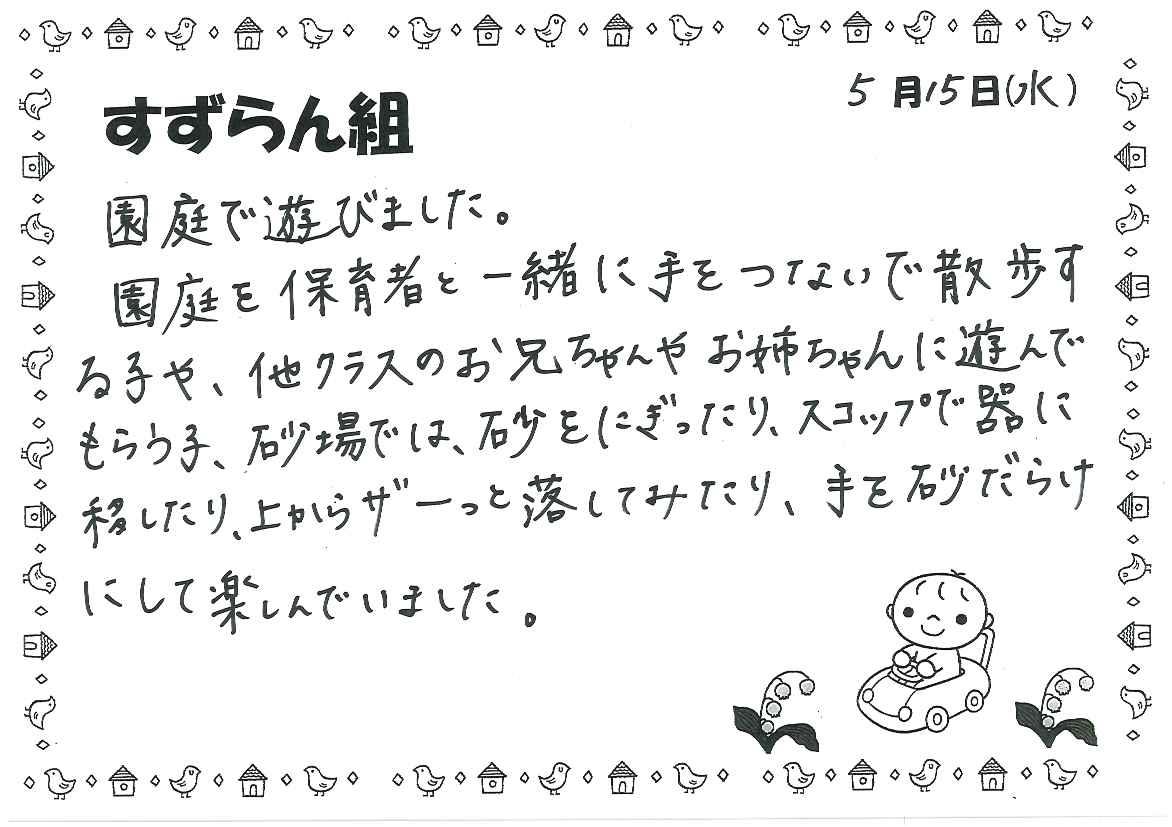 5月15日(水)
すずらん組
園庭で遊びました。
園庭を保育者と一緒に手をつないで散歩す
る子や、他クラスのお兄ちゃんやお姉ちゃんに遊んで
もらう子、砂場では、砂をにぎったり、スコップで器に
移したり、上からザーっと落してみたり、手を砂だらけ
にして楽しんでいました。